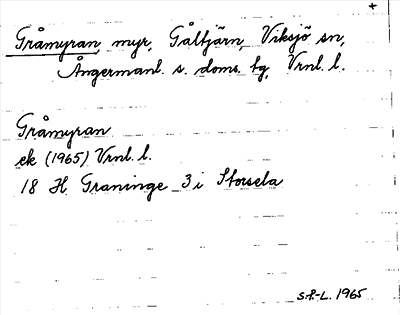 +
Gråmyran, myr, Gåltjärn, Viksjö sn,
Ångermanl. s. doms. tg, Vrnl. l.
Gråmyran
ek (1965) Vrnl. l.
18 H Graninge 3 i Storsela
S.P-L. 1965